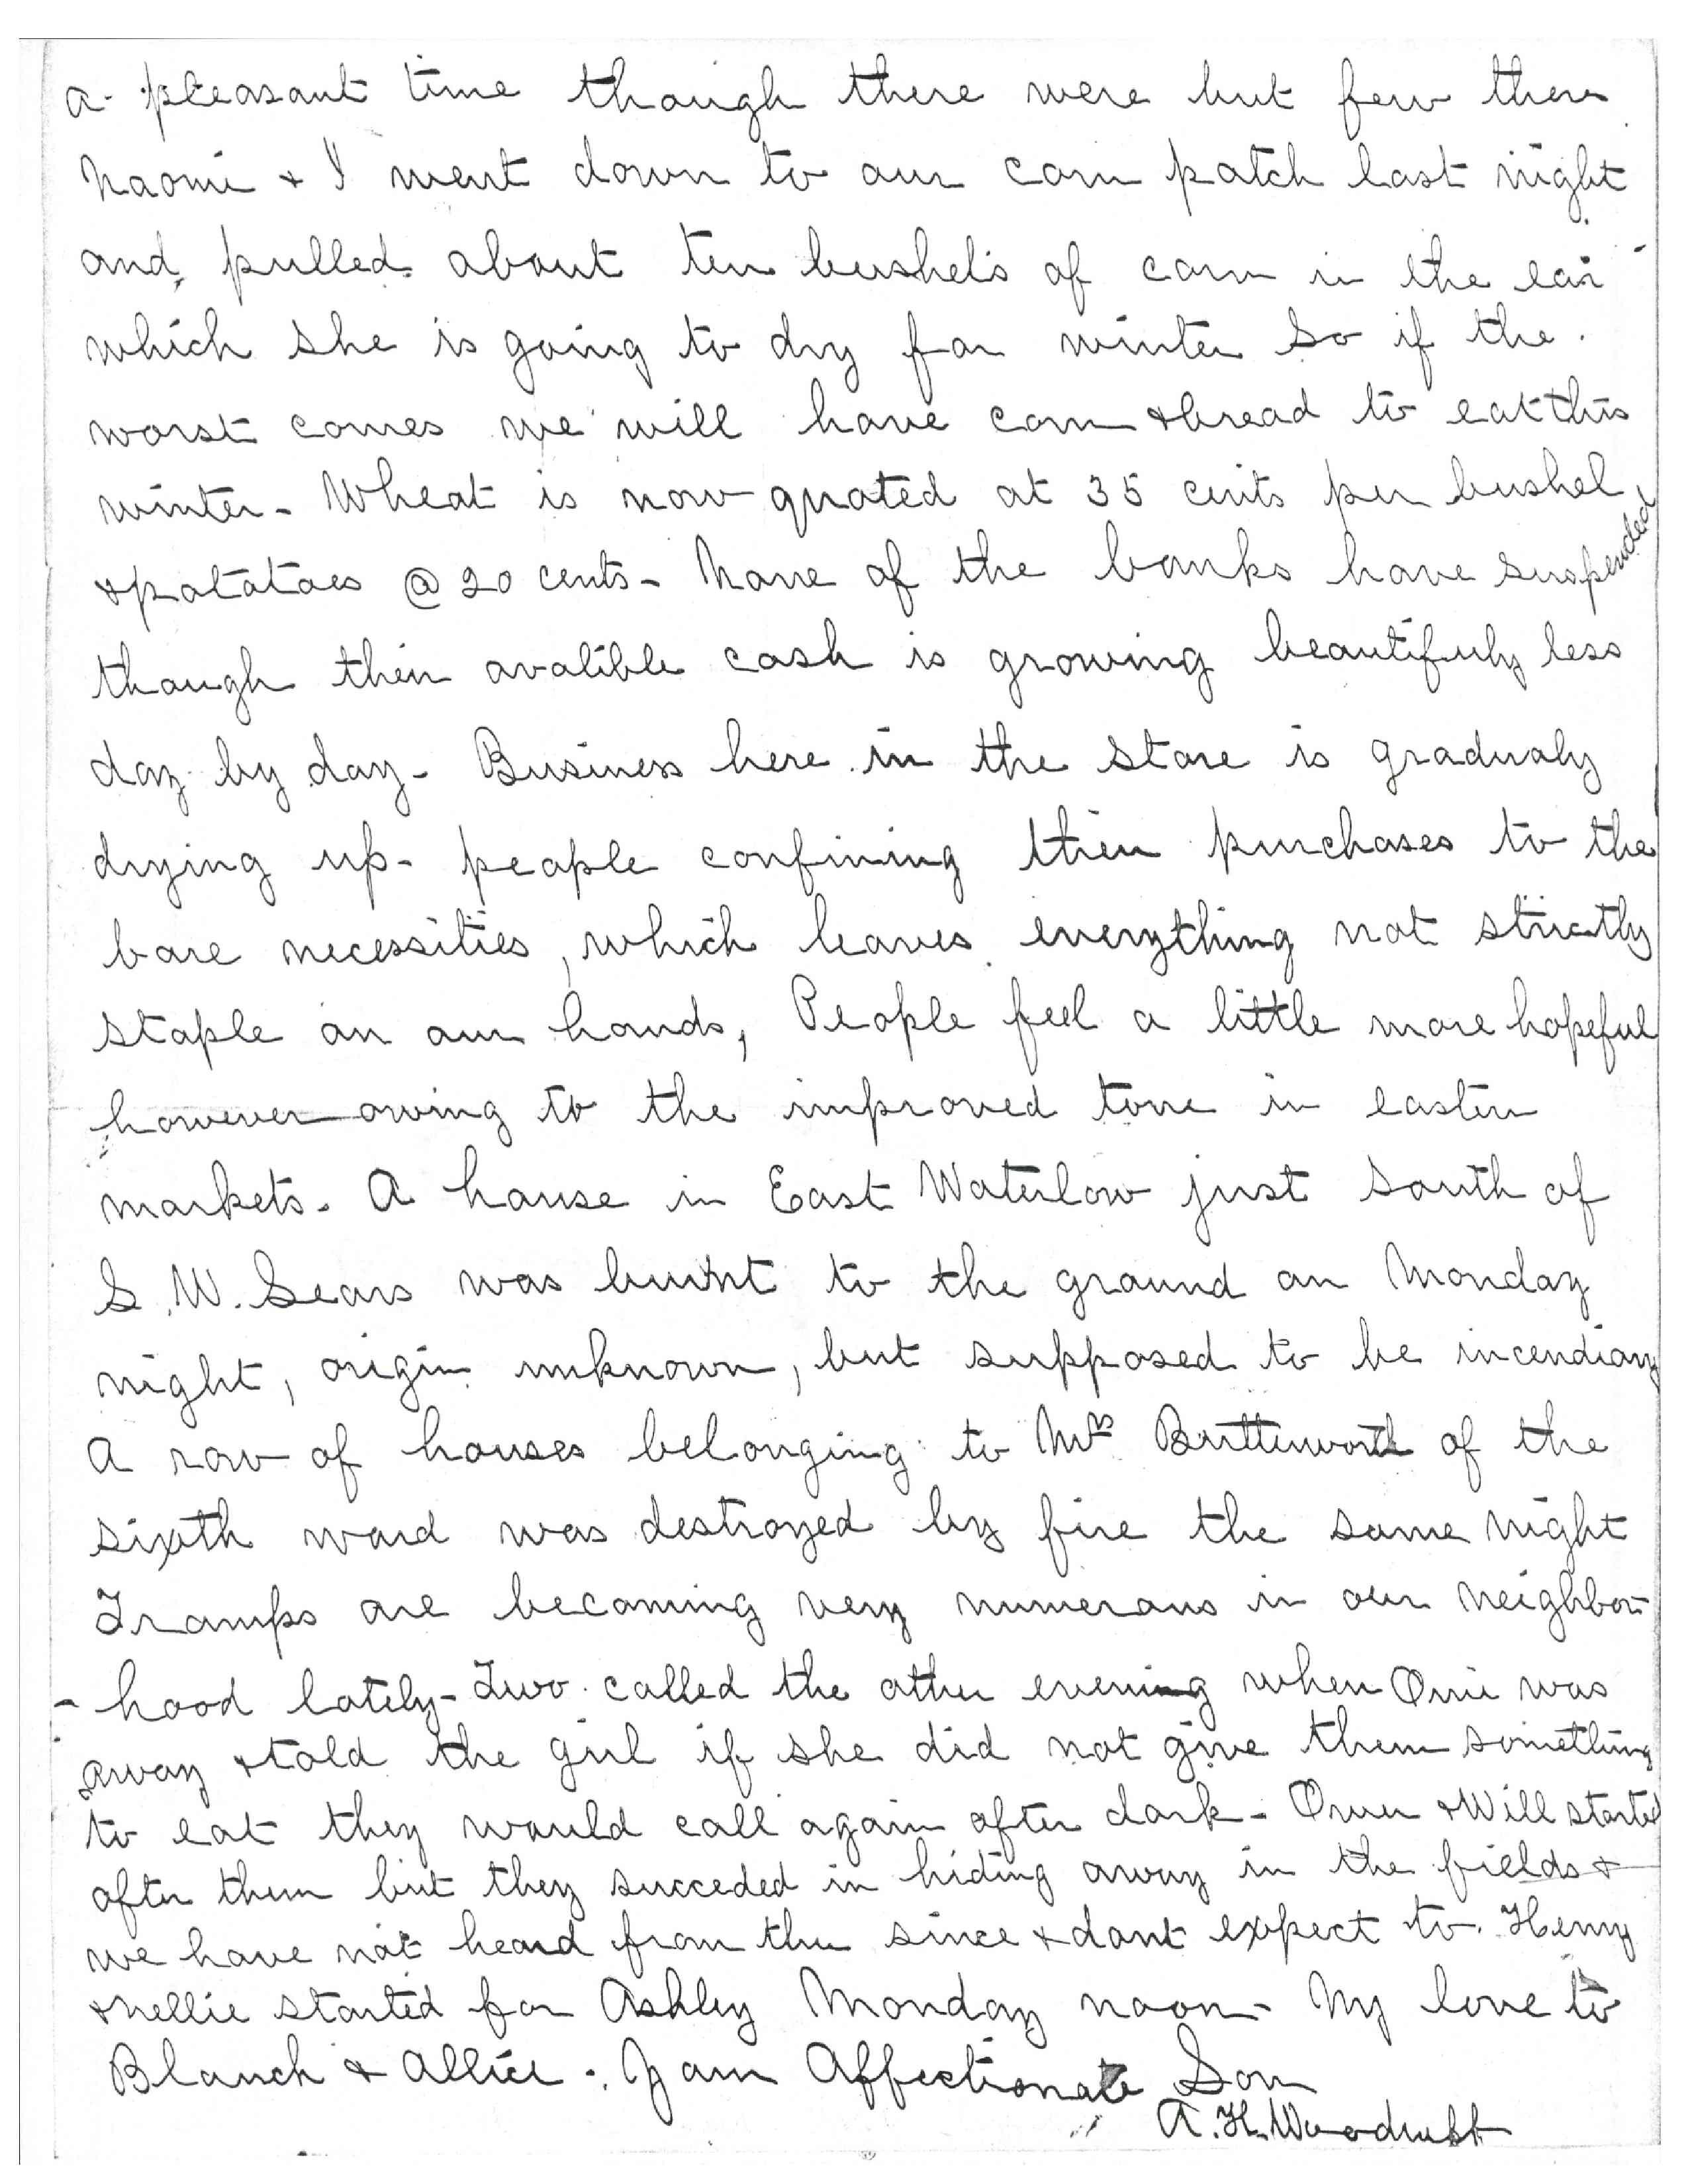 a pleasant time though there were but few there
Naomi & I went down to our corn patch last night
and pulled about ten bushels of corn in the ear
which she is going to dry for winter So if the
worst comes we will have corn & bread to eat this
winter - Wheat is now quoted at 35 cents per bushel
& potatoes @ 20 cents - None of the banks have suspended
though their avalible cash is growing beautifuly less
day by day - Business here in the store is gradualy
drying up - people confining their purchases to the
bare necessities, which leaves everything not strictly
staple on our hands, People feel a little more hopeful
however owing to the improved tone in eastern
markets. A house in East Waterlow just south of
S. W. Sears was burnt to the ground on Monday
night, origin unknown, but supposed to be incendiary
A row of houses belonging to Mrs Butterworth of the
sixth ward was destroyed by fire the same night
Tramps are becoming very numerous in our neighbor-
-hood lately - Two called the other evening when Omie was
away & told the girl if she did not give them something
to eat they would call again after dark - Omer & Will started
after them but they succeded in hiding away in the fields &
we have not heard from the since & dont expect to. Henry
& Nellie started for Ashley Monday noon - My love to
Blanch & Allice. I am Affectionate Son
A. H. Woodruff